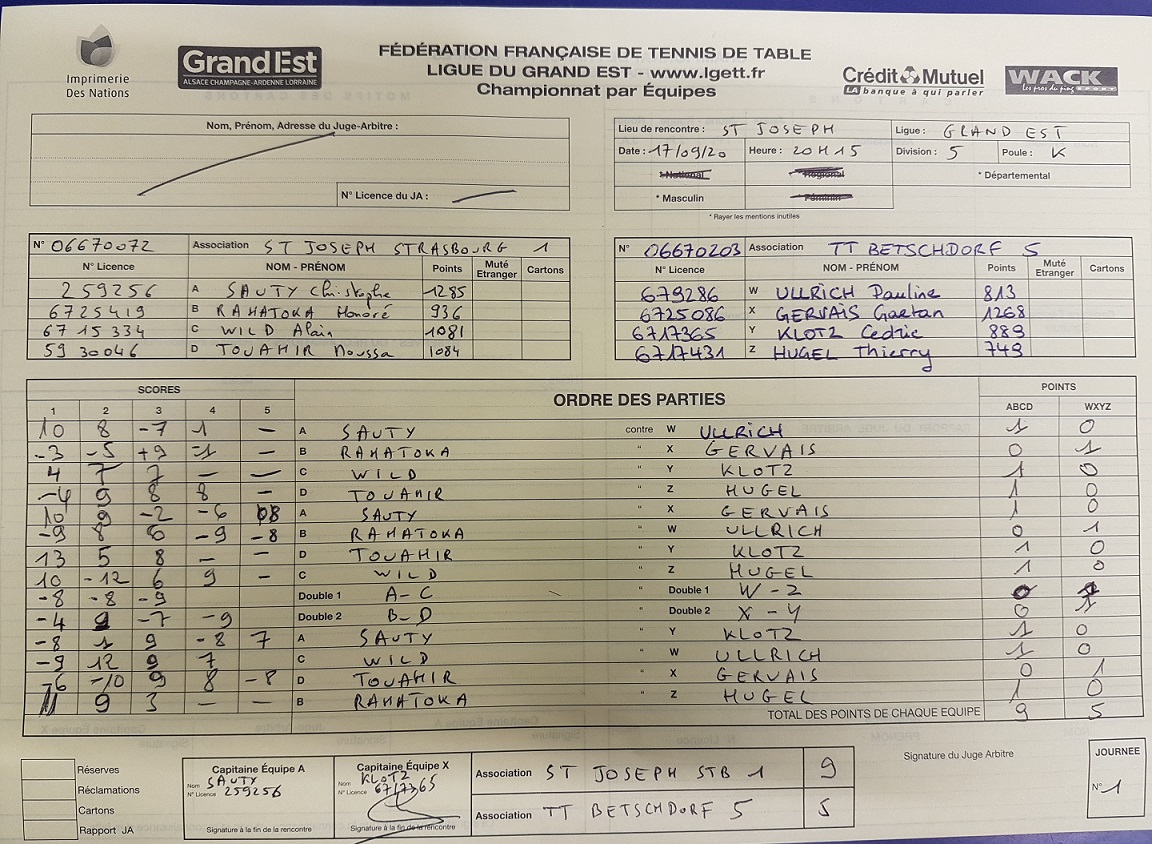 Imprimerie
Des Nations
GrandEst
ALSACE CHAMPAGNE-ARDENNE LORRAINE
FÉDÉRATION FRANÇAISE DE TENNIS DE TABLE
LIGUE DU GRAND EST - www.lgett.fr
Championnat par Équipes
Crédit Mutuel
LA banque à qui parler
WACK
Les pros du ping SPORT
Nom, Prénom, Adresse du Juge-Arbitre :
N° Licence du JA :
Lieu de rencontre : ST JOSEPH Ligue : GRAND EST
Date : 17/09/20 Heure : 20H15 Division : 5 Poule : K
* National * Régional * Départemental
* Masculin * Féminin
* Rayer les mentions inutiles
N° 06670072 Association ST JOSEPH STRASBOURG 1
N° Licence NOM - PRÉNOM Points Muté Etranger Cartons
259256 A SAUTY Christophe 1285
6725419 B RAMATOKA Honoré 936
6715334 C WILD Alain 1081
5930046 D TOUAHIR Moussa 1084
N° 06670203 Association TT BETSCHDORF 5
N° Licence NOM - PRÉNOM Points Muté Etranger Cartons
679286 W ULLRICH Pauline 813
6725086 X GERVAIS Gaetan 1268
6717365 Y KLOTZ Cedric 889
6717431 Z HUGEL Thierry 749
SCORES ORDRE DES PARTIES POINTS
1 2 3 4 5 ABCD WXYZ
10 8 -7 1 — A SAUTY contre W ULLRICH 1 0
-3 -5 +9 -1 — B RAMATOKA " X GERVAIS 0 1
4 7 7 — — C WILD " Y KLOTZ 1 0
-4 9 8 8 — D TOUAHIR " Z HUGEL 1 0
10 9 -2 -6 8 A SAUTY " X GERVAIS 1 0
-9 8 6 -9 -8 B RAMATOKA " W ULLRICH 0 1
13 5 8 — — D TOUAHIR " Y KLOTZ 1 0
10 -12 6 9 — C WILD " Z HUGEL 1 0
-8 -8 -9 Double 1 A-C " Double 1 W-Z 0 1
-4 9 -7 -9 Double 2 B-D " Double 2 X-Y 0 1
-8 1 9 -8 7 A SAUTY " Y KLOTZ 1 0
-9 12 9 7 C WILD " W ULLRICH 1 0
-6 -10 9 8 -8 D TOUAHIR " X GERVAIS 0 1
11 9 3 — — B RAMATOKA " Z HUGEL 1 0
TOTAL DES POINTS DE CHAQUE EQUIPE 9 5
Réserves
Réclamations
Cartons
Rapport JA
Capitaine Équipe A
Nom SAUTY
N° Licence 259256
Signature à la fin de la rencontre
Capitaine Équipe X
Nom KLOTZ
N° Licence 6717365
Signature à la fin de la rencontre
Association ST JOSEPH STB 1 9
Association TT BETSCHDORF 5 5
Signature du Juge Arbitre
JOURNEE
N° 1